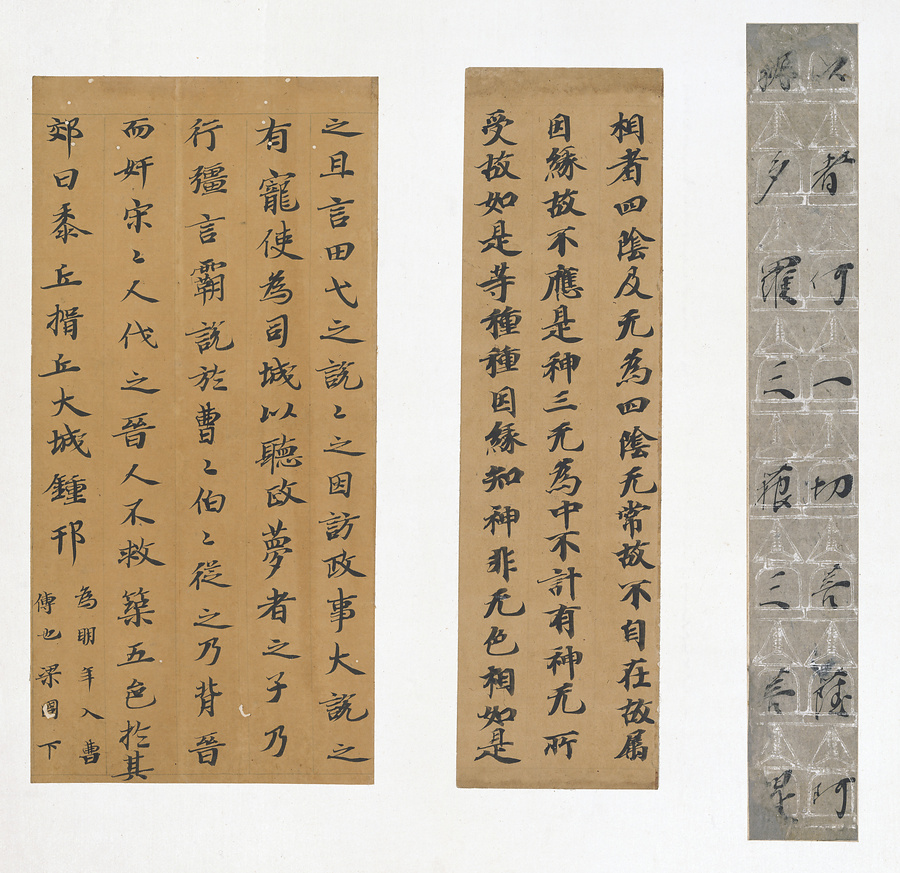 以者何一切菩薩阿
耨多羅三藐三菩提
相者四陰及无為四陰无常故不自在故屬
因緣故不應是神三无為中不計有神无所
受故如是等種種因緣知神非无色相如是
之且言田弋之説〻之因訪政事大説之
有寵使為司城以聽政夢者之子乃
行彊言霸説於曹〻伯〻從之乃背晉
而奸宋〻人伐之晉人不救築五邑於其
郊曰黍丘揖丘大城鍾邗
為明年入曹
傳也梁國下